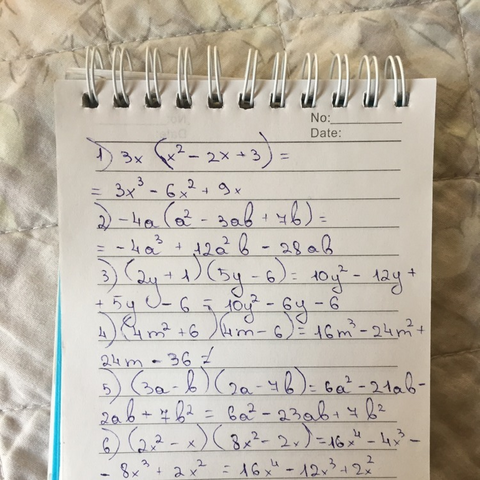 No:
Date:
1) 3x (x² - 2x + 3) =
= 3x³ - 6x² + 9x
2) -4a (a² - 3ab + 7b) =
= -4a³ + 12a²b - 28ab
3) (2y + 1) (5y - 6) = 10y² - 12y +
+ 5y - 6 = 10y² - 6y - 6
4) (4m² + 6) (4m - 6) = 16m³ - 24m² +
24m - 36
5) (3a - b) (2a - 7b) = 6a² - 21ab -
2ab + 7b² = 6a² - 23ab + 7b²
6) (2x² - x) (8x² - 2x) = 16x⁴ - 4x³ -
- 8x³ + 2x² = 16x⁴ - 12x³ + 2x²